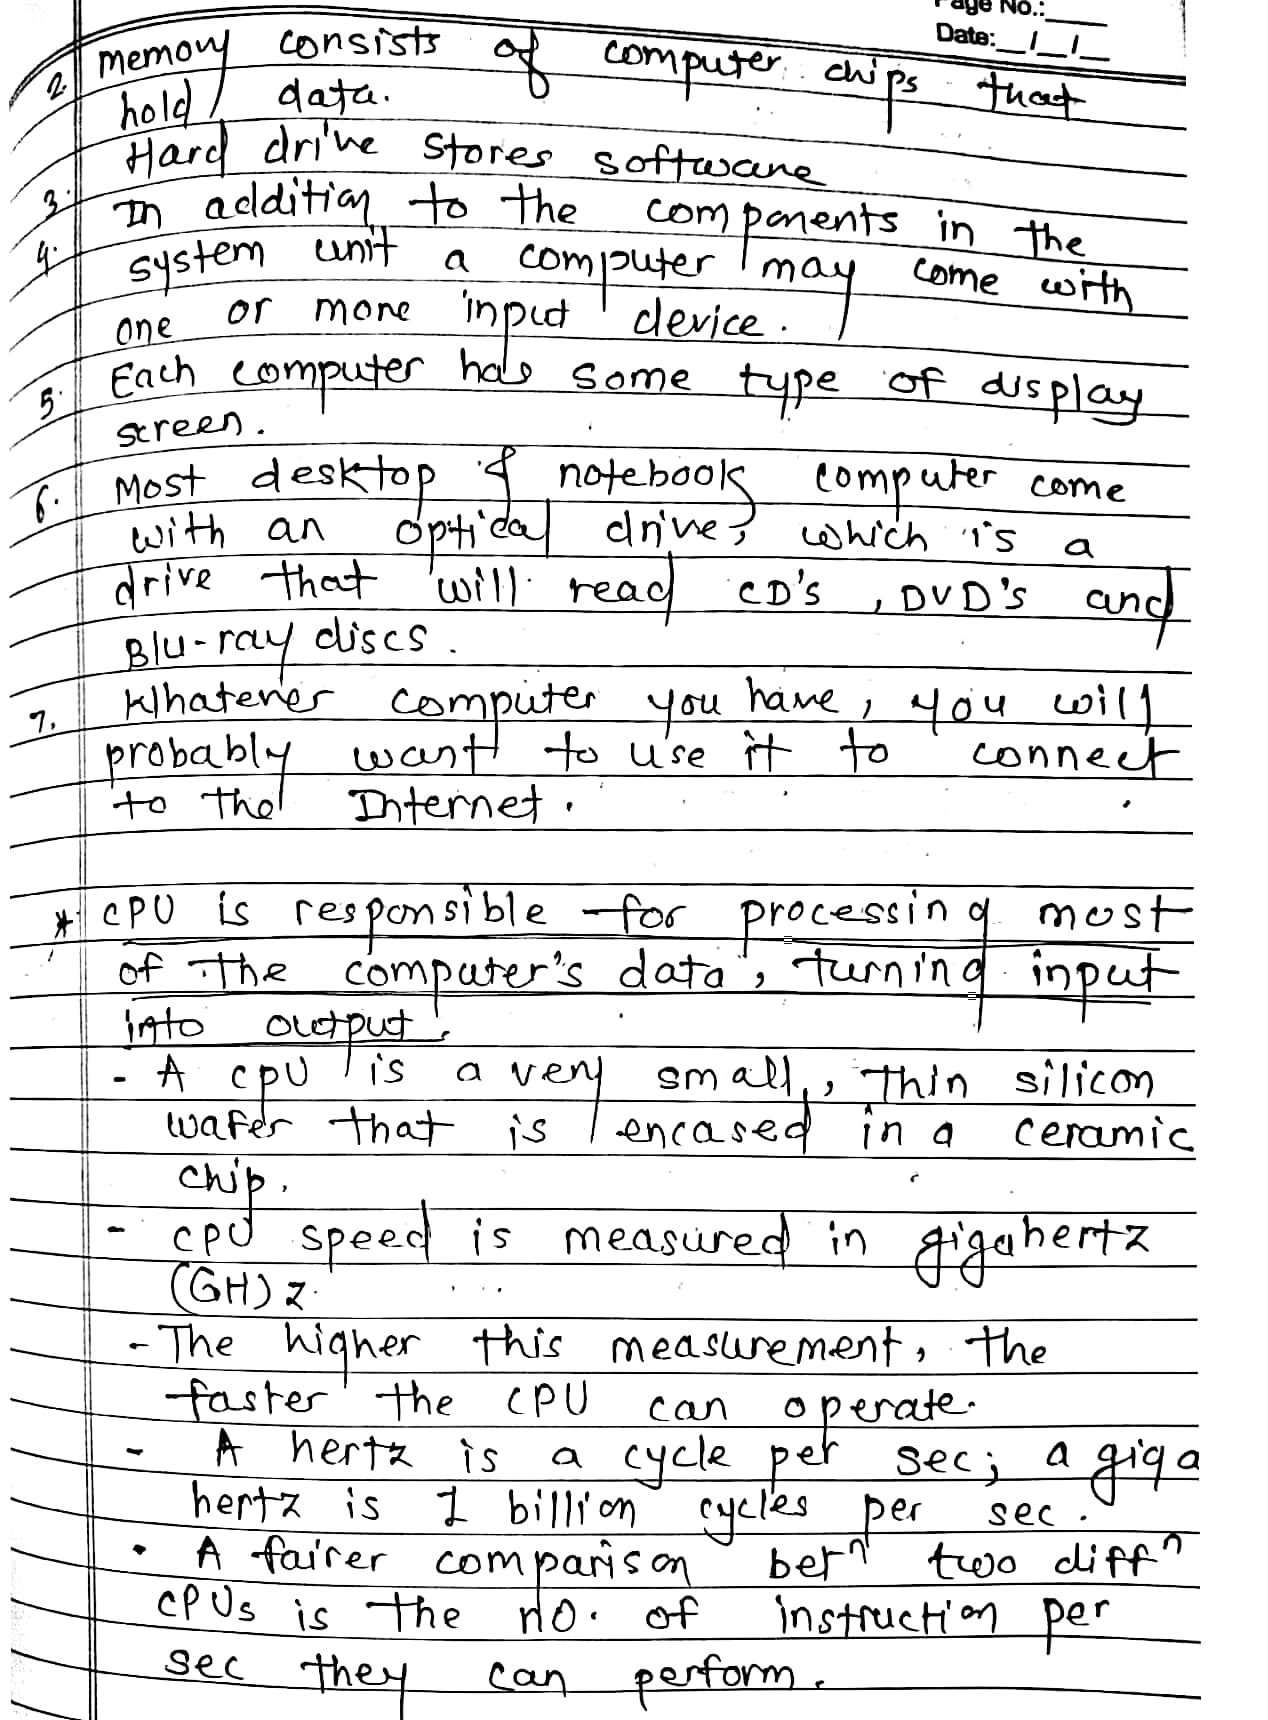 Page No.:
Date: _/_/_
2. memory consists of computer chips that
hold data.
3. Hard drive stores software
4. In addition to the components in the
system unit a computer may come with
one or more input device.
5. Each computer has some type of display
screen.
6. Most desktop & notebook computer come
with an optical drive, which is a
drive that will read CD's, DVD's and
Blu-ray discs.
7. Whatever computer you have, you will
probably want to use it to connect
to the Internet.
* CPU is responsible for processing most
of the computer's data, turning input
into output.
- A CPU is a very small, thin silicon
wafer that is encased in a ceramic
chip.
- CPU speed is measured in gigahertz
(GH)z.
- The higher this measurement, the
faster the CPU can operate.
- A hertz is a cycle per sec; a giga
hertz is 1 billion cycles per sec.
• A fairer comparison betⁿ two diffⁿ
CPUs is the no. of instruction per
sec they can perform.